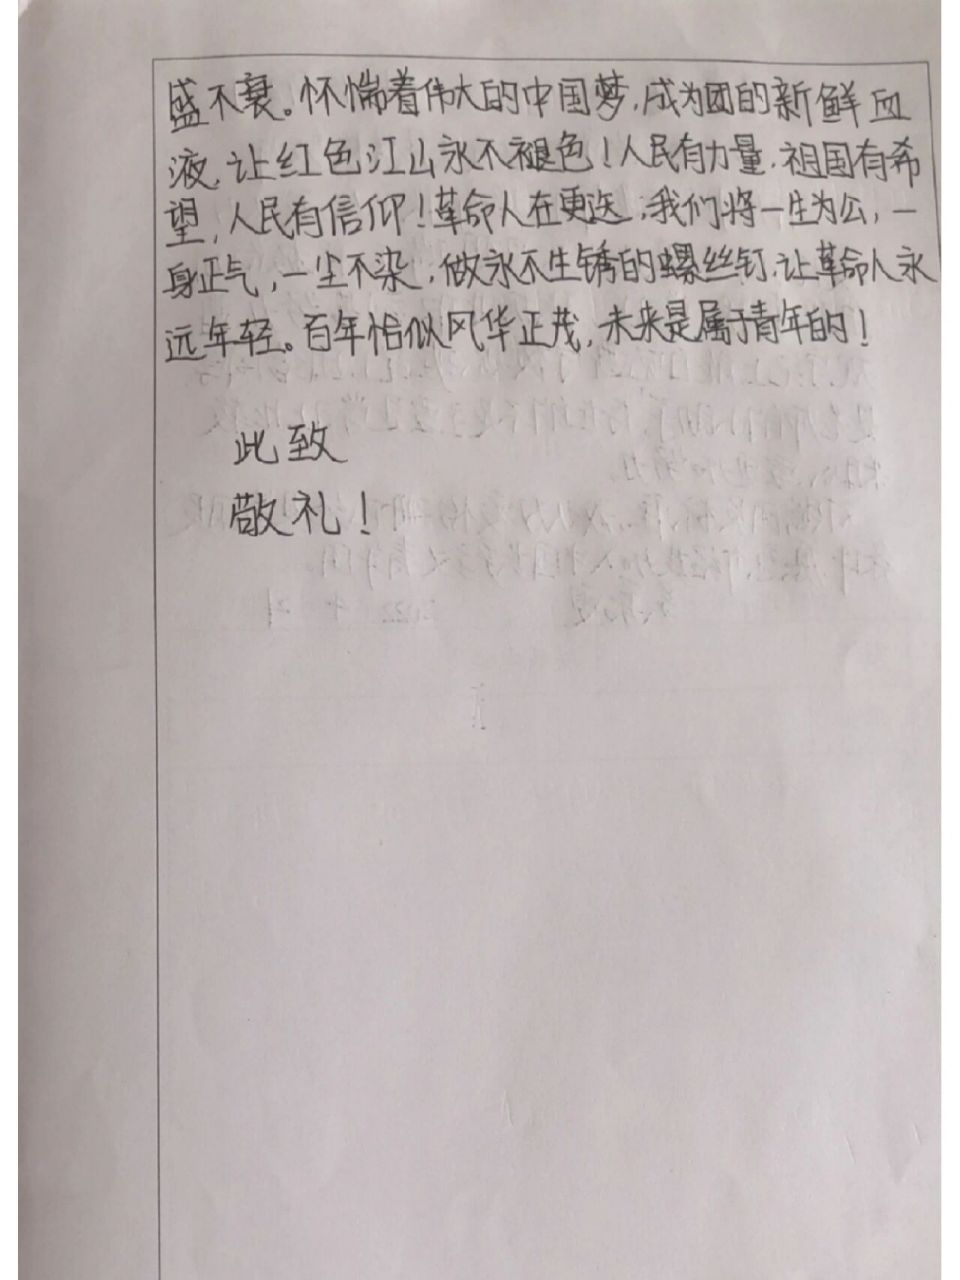 盛不衰。怀惴着伟大的中国梦，成为团的新鲜血
液，让红色江山永不褪色！人民有力量，祖国有希
望，人民有信仰！革命人在更迭，我们将一生为公，一
身正气，一尘不染，做永不生锈的螺丝钉，让革命人永
远年轻。百年恰似风华正茂，未来是属于青年的！
此致
敬礼！